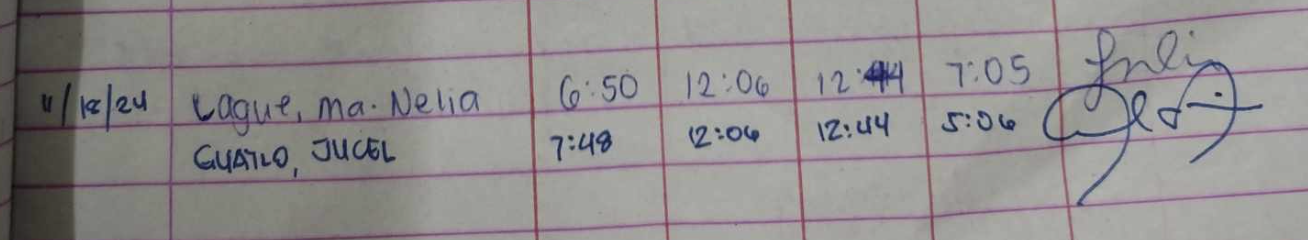 11/12/24 Lague, Ma. Nelia 6:50 12:06 12:44 7:05
GUATLO, JUCEL 7:48 12:06 12:44 5:06